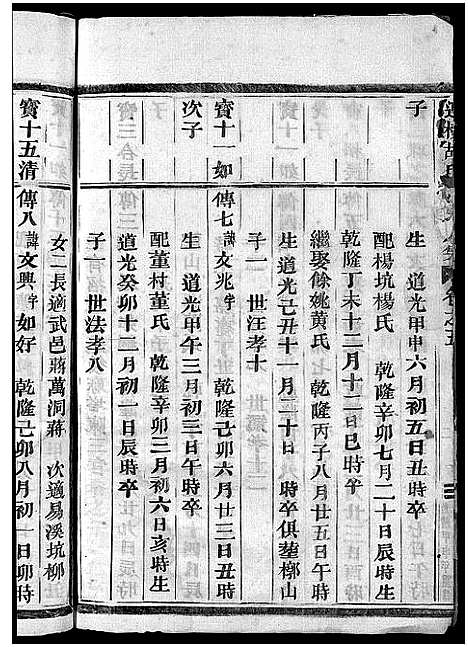 子
生 道光甲申六月初五日丑時卒
配楊坑楊氏 乾隆辛卯七月二十日辰時生
乾隆丁未十二月十二日巳時卒
繼娶餘姚黃氏 乾隆丙子八月廿五日午時
生 道光己丑十一月二十日 時卒俱塟槨山
子一 世汪孝十
寶十一如 傳七 諱文兆字 乾隆己卯六月廿三日丑時
次子
生 道光甲午三月初三日午時卒
配董村董氏 乾隆辛卯三月初六日亥時生
道光癸卯十二月初一日辰時卒
子一 世法孝八
女二長適武邑蔣萬洞蔣 次適易溪坑柳
寶十五清 傳八 諱文興字如好 乾隆己卯八月初一日卯時